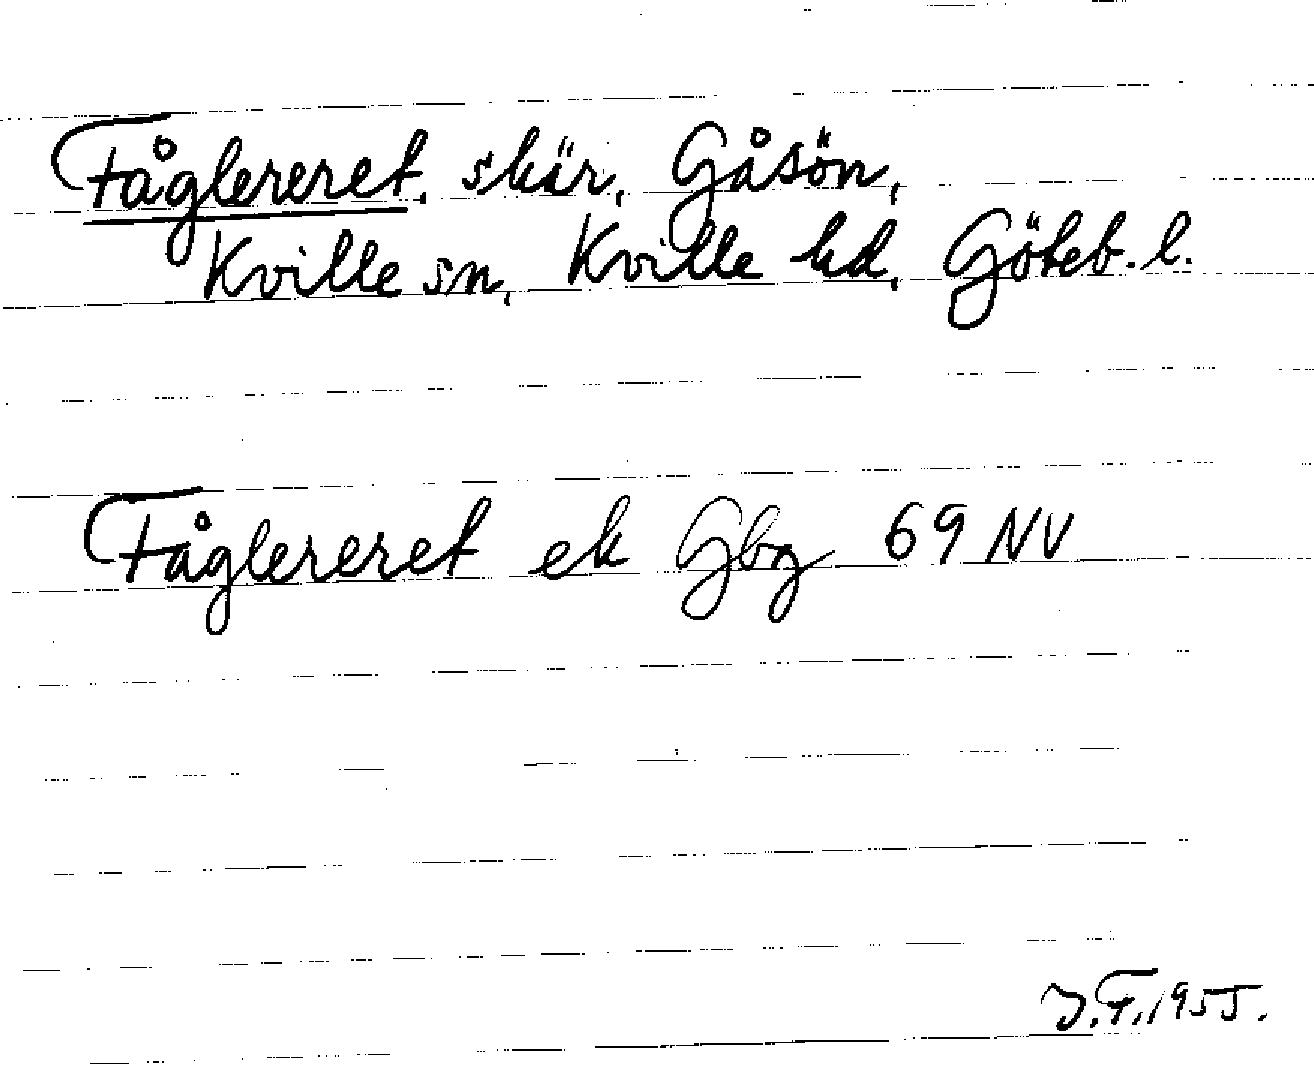 Fåglereret, skär, Gåsön,
Kville sn, Kville hd, Göteb. l.
Fåglereret ek Gbg 69 NV
J.F. 1955.